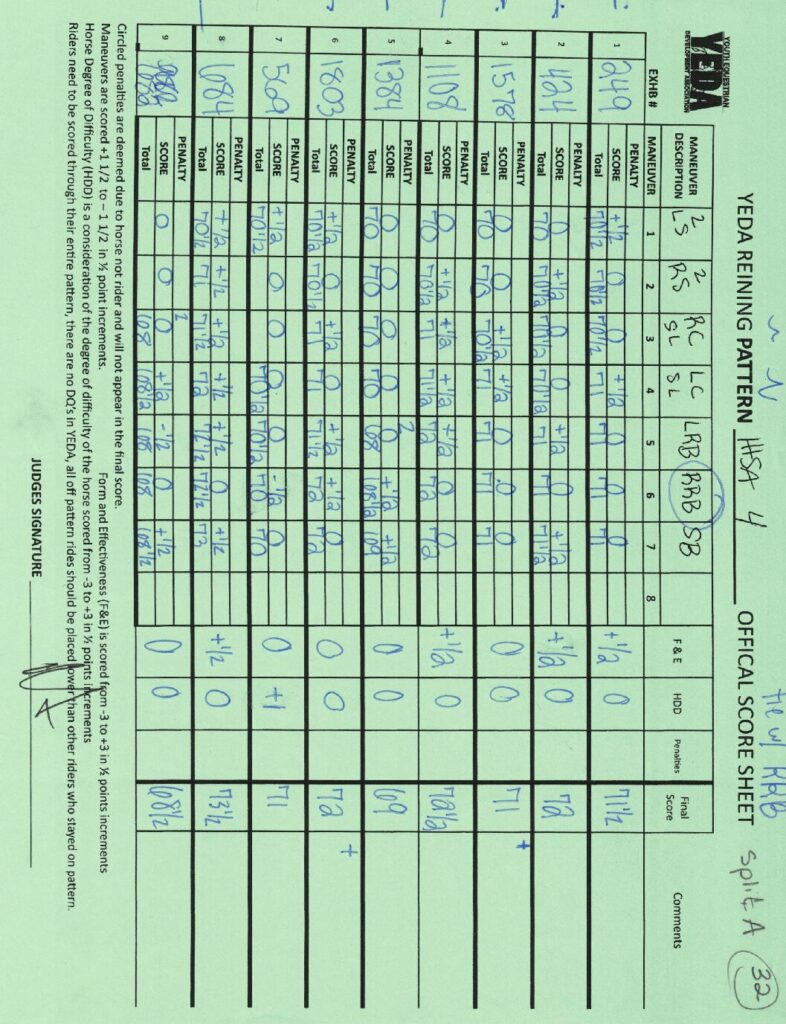 YOUTH EQUESTRIAN
YEDA
DEVELOPMENT ASSOCIATION
YEDA REINING PATTERN IHSA 4 OFFICAL SCORE SHEET Split A 32
Tie w/ RRB
MANEUVER DESCRIPTION 2 LS 2 RS RC SL LC SL LRB RRB SB F & E HDD Penalties Final Score Comments
EXHB # MANEUVER 1 2 3 4 5 6 7 8
1 249 PENALTY
SCORE +1/2 0 0 +1/2 0 0 0 +1/2 0 71 1/2
Total 70 1/2 70 1/2 70 1/2 71 71 71 71
2 424 PENALTY
SCORE 0 +1/2 0 0 +1/2 0 +1/2 +1/2 0 72
Total 70 70 1/2 70 1/2 70 1/2 71 71 71 1/2
3 1578 PENALTY
SCORE 0 0 +1/2 +1/2 0 0 0 0 0 71 +
Total 70 70 70 1/2 71 71 71 71
4 1108 PENALTY
SCORE 0 +1/2 +1/2 +1/2 +1/2 0 0 +1/2 0 72 1/2
Total 70 70 1/2 71 71 1/2 72 72 72
5 1384 PENALTY 2
SCORE 0 0 0 0 0 +1/2 +1/2 0 0 69
Total 70 70 70 70 68 68 1/2 69
6 1803 PENALTY
SCORE +1/2 0 +1/2 0 +1/2 +1/2 0 0 0 72 +
Total 70 1/2 70 1/2 71 71 71 1/2 72 72
7 569 PENALTY
SCORE +1/2 0 0 0 0 -1/2 0 0 +1 71
Total 70 1/2 70 1/2 70 1/2 70 70
8 684 PENALTY
SCORE +1/2 +1/2 +1/2 +1/2 +1/2 0 +1/2 +1/2 0 73 1/2
Total 70 1/2 71 71 1/2 72 72 1/2 72 1/2 73
9 PENALTY 2
SCORE 0 0 0 +1/2 -1/2 0 +1/2 0 0 68 1/2
Total 68 68 1/2 68 68 68 1/2
Circled penalties are deemed due to horse not rider and will not appear in the final score.
Maneuvers are scored +1 1/2 to – 1 1/2 in ½ point increments. Form and Effectiveness (F&E) is scored from -3 to +3 in ½ points increments
Horse Degree of Difficulty (HDD) is a consideration of the degree of difficulty of the horse scored from -3 to +3 in ½ points increments
Riders need to be scored through their entire pattern, there are no DQ's in YEDA, all off pattern rides should be placed lower than other riders who stayed on pattern.
JUDGES SIGNATURE